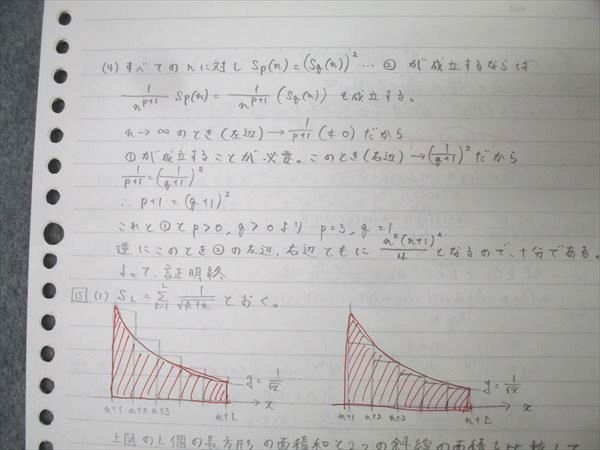 (4) すべてのnに対し Sp(n)=(Sq(n))² … ② が成立するならば
1/n^(p+1) Sp(n) = 1/n^(p+1) (Sq(n))² も成立する。
n→∞ のとき (左辺)→ 1/(p+1) (≠0) だから
①が成立することが必要。このとき(右辺)→(1/(q+1))² だから
1/(p+1) = (1/(q+1))²
∴ p+1 = (q+1)²
これと①とp>0, q>0より p=3, q=1
逆にこのとき②の左辺, 右辺ともに n²(n+1)²/4 となるので、十分である。
よって、証明終
15 (1) S_L = Σ 1/√(k+n) とおく。
y = 1/√x
y = 1/√x
n+1 n+2 n+3 n+L x
n+1 n+2 n+3 n+L x
上図のL個の長方形の面積和と2つの斜線の面積を比較して